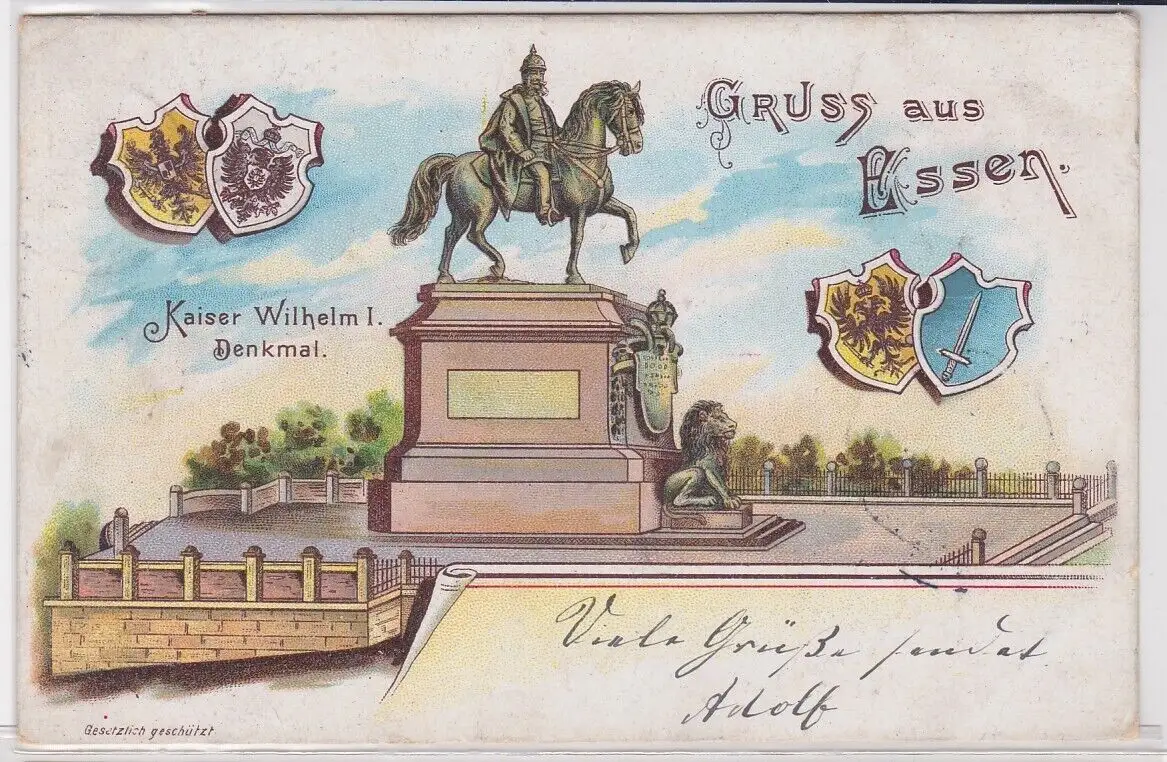 Gruss aus
Essen.
Kaiser Wilhelm I.
Denkmal.
Viele Grüße sendet
Adolf
Gesetzlich geschützt